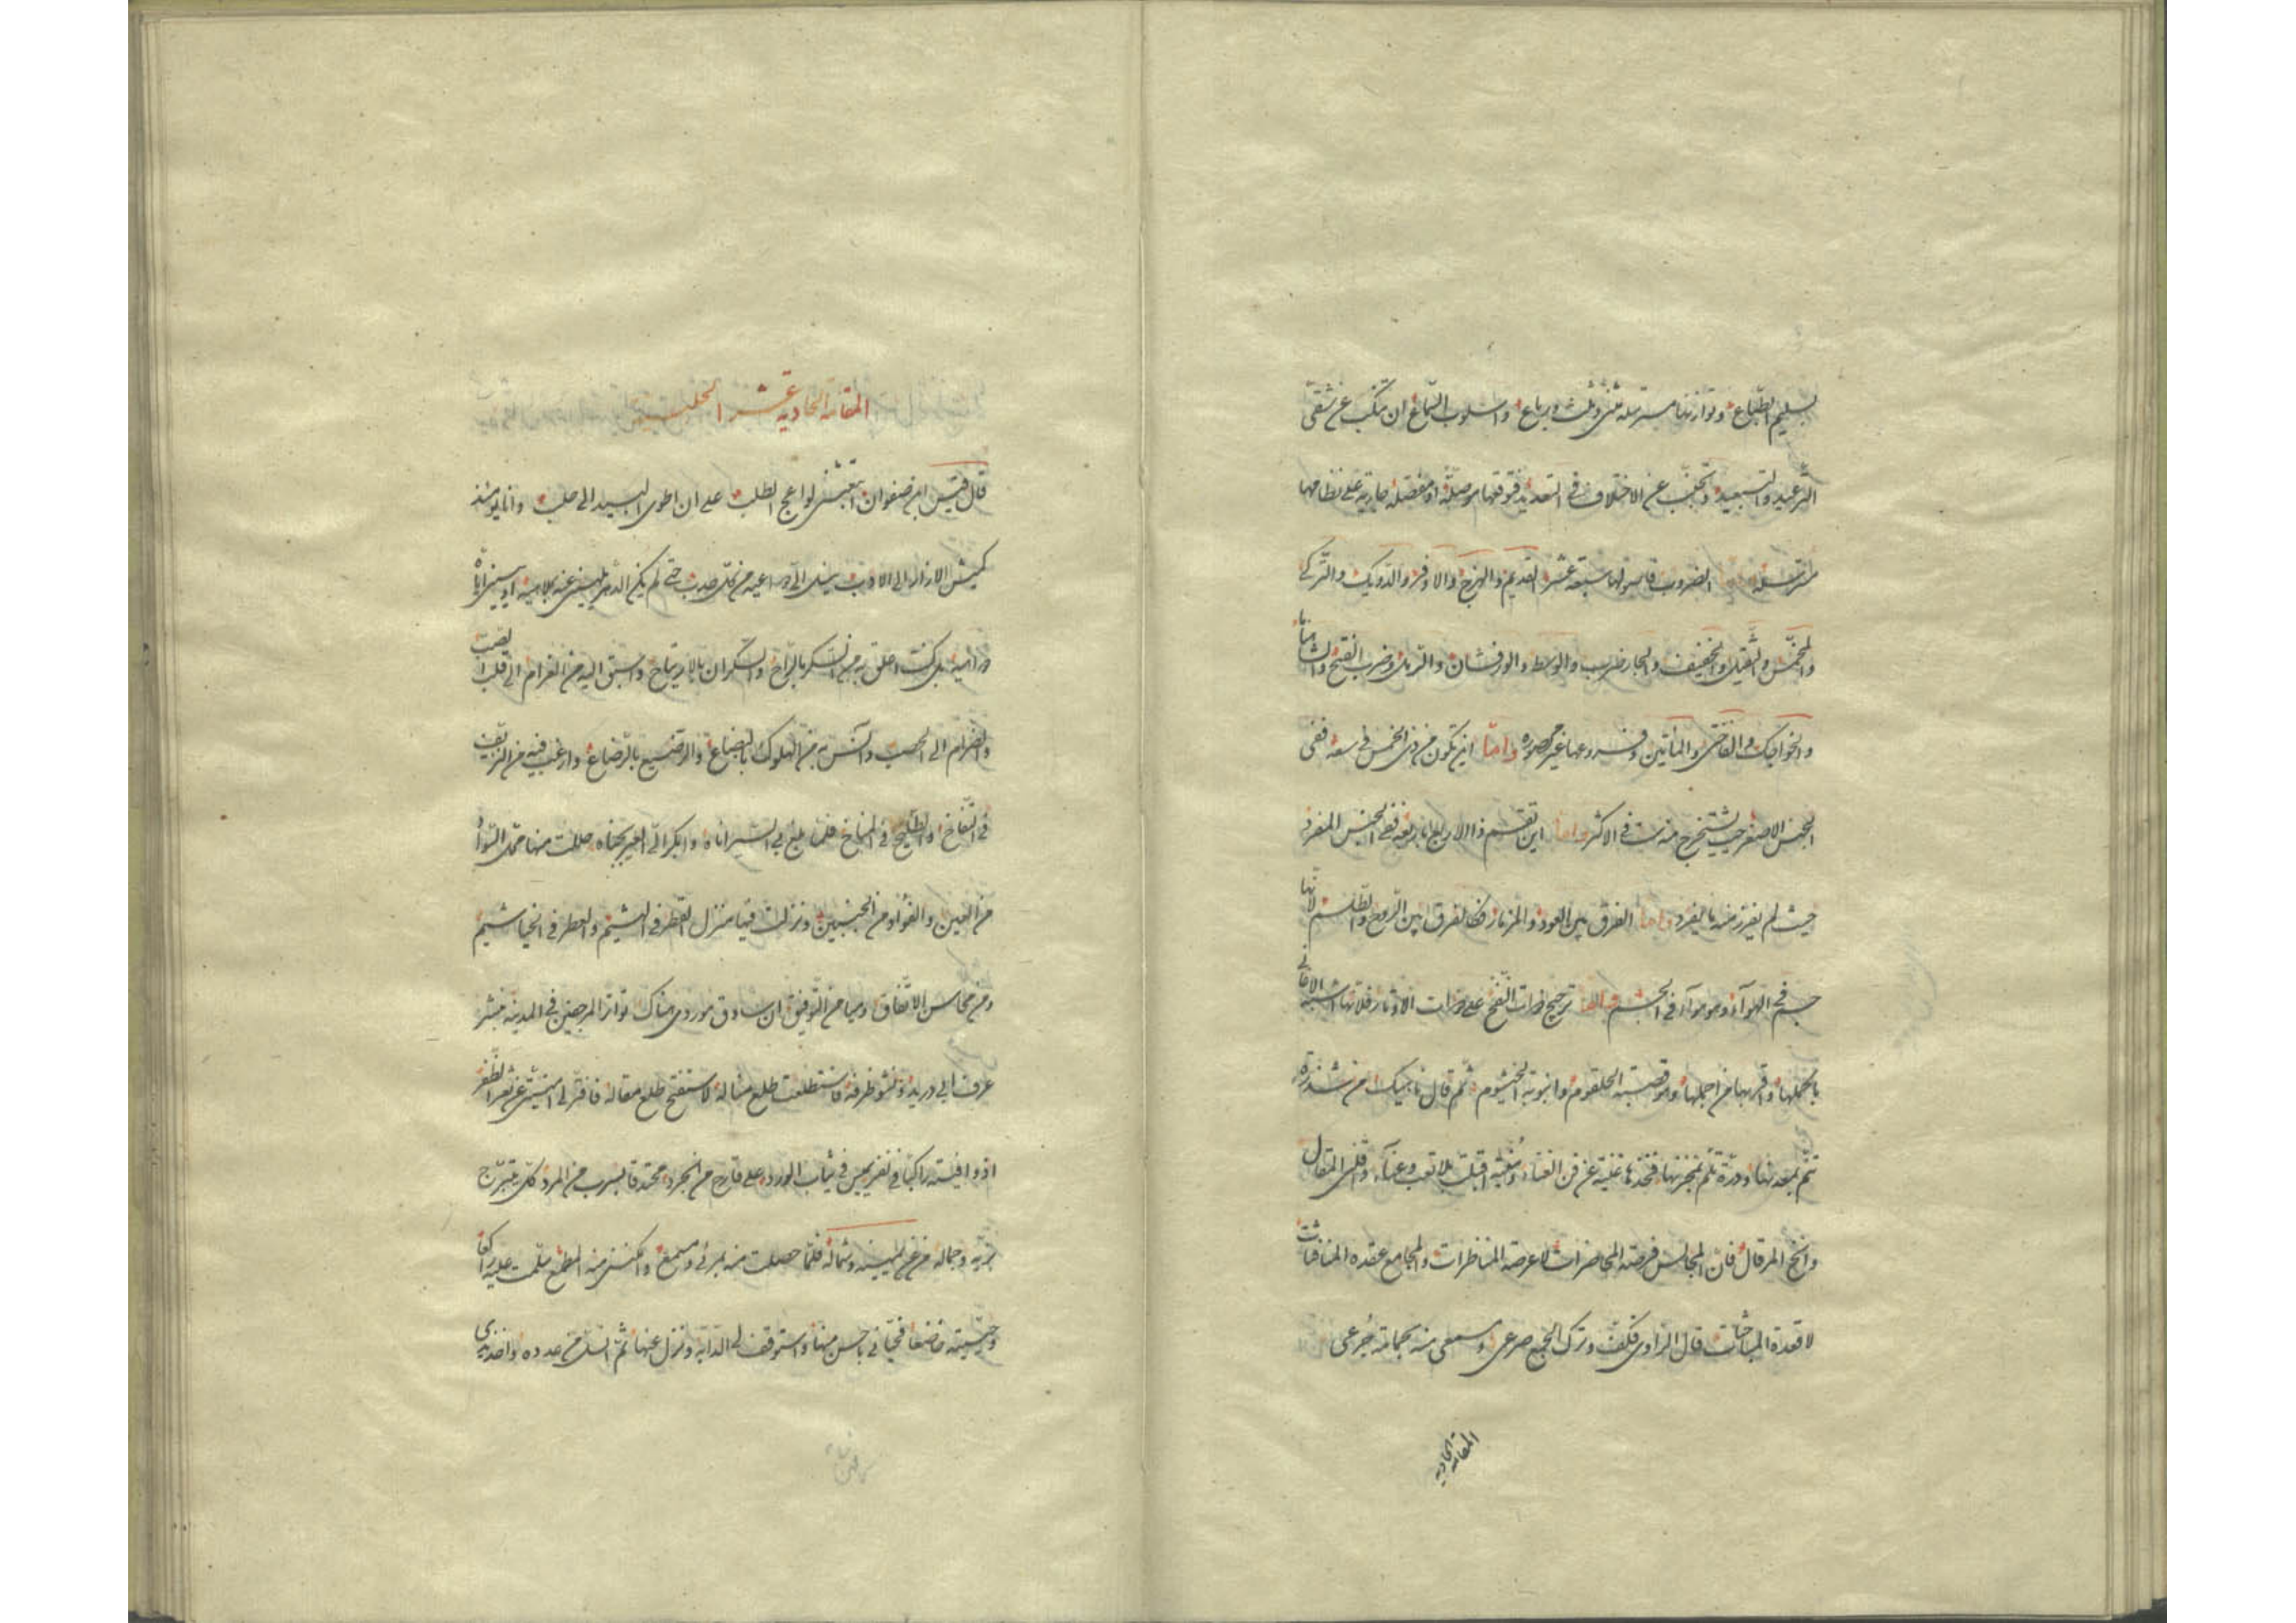 بسليم الطباع وتوازنها مسترسلة مثنى وثلث ورباع واسلوب السماع ان تنكب عن شقى
الترعيد والتبعيد وتجنب عن الاختلاف في التعديد فتوقعها موصلة او مفصلة جارية على نظامها
مترسلة الضروب فاصولها سبعة عشر القديم والهزج والاوفر والدويك والتركى
والمخمس والثقيل والخفيف والچارضرب والوسط والورفشان والرمل وضرب الفتح والشاميانا
والخواجك والفاختى والمأتين وفروعها غير محصورة واما اين تكون من ذى الخمس في سعة ففى
الجنس الاصغر حيث يستخرج منه ست في الاكثر واما اين تقسم ذا الاربع اربعة ففى الجنس المنفرد
حيث لم يفرز منه ما يفرد واما الفرق بين العود والمزمار فكالفرق بين الروح والطلسم لانها
جسم في الهوآء وهو هوآء في الجسم واما ترجيح ذوات النفخ على ذوات الاوتار فلانها اشبه الاغانى
باكملها واقربها من اجملها وهو قصبة الحلقوم وانبوبة الخيشوم ثم قال ناجيك من شذرة
تنم بمعدنها ودرة تلم بمخزنها فخذها غنية عن فن الغناء وبغية اقبلت بلا تعب وعناء وقلل المقال
وانخ المرقال فان المجالس فرصة المحاضرات لا عرصة المناظرات والمجامع عقدة المنافثات
لا قعدة المباحثات قال الراوى فكلف وترك الجميع صرعى وسمعى منه بجمامة جرعى
المقامة الحادية
المقامة الحادية عشر الحلبية
قال قيس ابن صفوان استعبثنى لواعج الطلب على ان اطوى البيد الى حلب وانا يومئذ
كميش الازار الى الادب ينسل الى دواعيه من كل حدب حتى لم يكن الدهر يلهينى عنه بملاهيه او ينسينى اياه
دواهيه بل كنت اعلق به من السكر بالراح والسكران بالارتياح واسبق اليه من الغرام الى قلب الصب
والضرام الى الحصب وآنس به من الهلوك بالبضاع والرضيع بالرضاع وارغب فيه من النزيف
في النقاخ والطليح في المناخ فلما بلغ بى السير اناه وابكر الى العير بجناه حللت منها محل السواد
من العين والفؤاد من الجنبين ونزلت فيها منزل القطر في الهشيم والعطر في الخياشيم
ومن محاسن الاتفاق وميامن التوفيق ان ساوق موردى هناك تواتر المرجفين في المدينة بنشر
عرف ابى دريد ونشو ظرفه فاستطلعت طلع مثاله لاستفتح طلع مقاله فافتر لى امنيتى عن ثغر الظفر
اذ وافيته راكبا في نفر يميس في ثياب الورد على قارح من الجرد محتدقا بسرب من المرد كل يتبرج
بزيه وجماله من عن يمينه وشماله فلما حصلت منه بمرئى ومسمع وامكننى منه المطمع سلمت عليه راكعا
وحييته خاضعا فحيانى باحسن منها واستوقف لى الدابة ونزل عنها ثم انسل من عدده واخذ بيدى